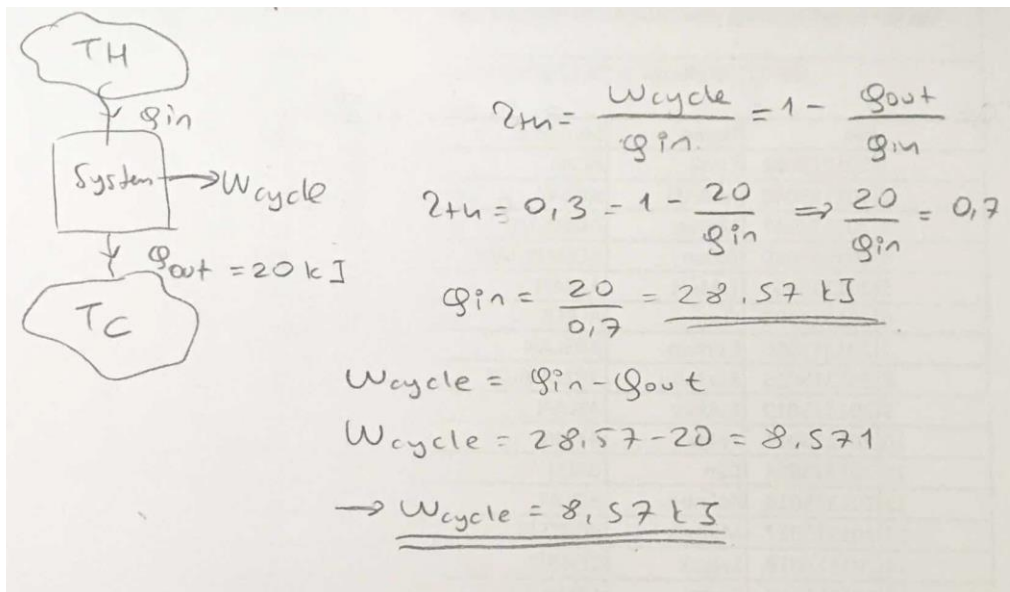 TH
Qin
System → Wcycle
Qout = 20 kJ
TC
ηth = Wcycle / Qin = 1 - Qout / Qin
ηth = 0,3 = 1 - 20 / Qin ⇒ 20 / Qin = 0,7
Qin = 20 / 0,7 = 28.57 kJ
Wcycle = Qin - Qout
Wcycle = 28.57 - 20 = 8.571
→ Wcycle = 8,57 kJ